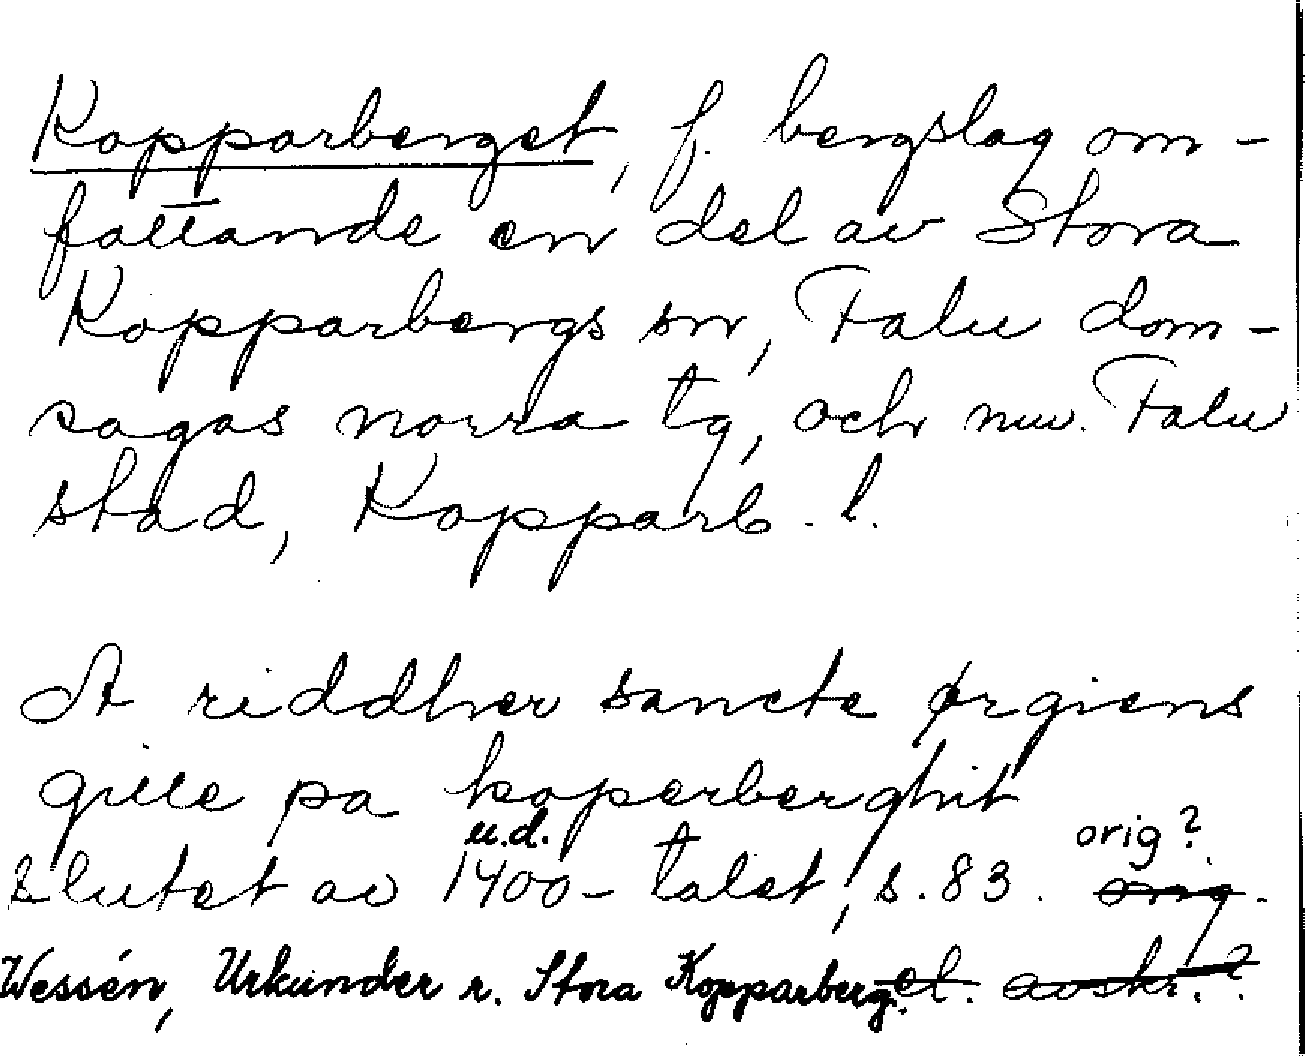 Kopparberget, f. bergslag om-
fattande en del av Stora
Kopparbergs sn, Falu dom-
sagas norra tg, och nuv. Falu
stad, Kopparb. l.
At riddher sancte ørgiens
gille pa koperberghit
u.d. orig?
slutet av 1400-talet, s. 83. orig.
Wessén, Urkunder r. Stora Kopparberg. el. avskr.?